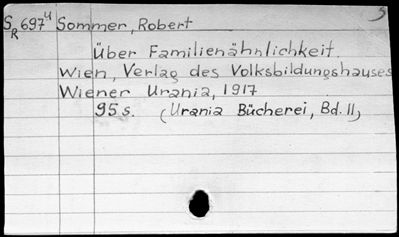 S R 697 u Sommer, Robert
Über Familienähnlichkeit.
Wien, Verlag des Volksbildungshauses
Wiener Urania, 1917
95 s. (Urania Bücherei, Bd. II)